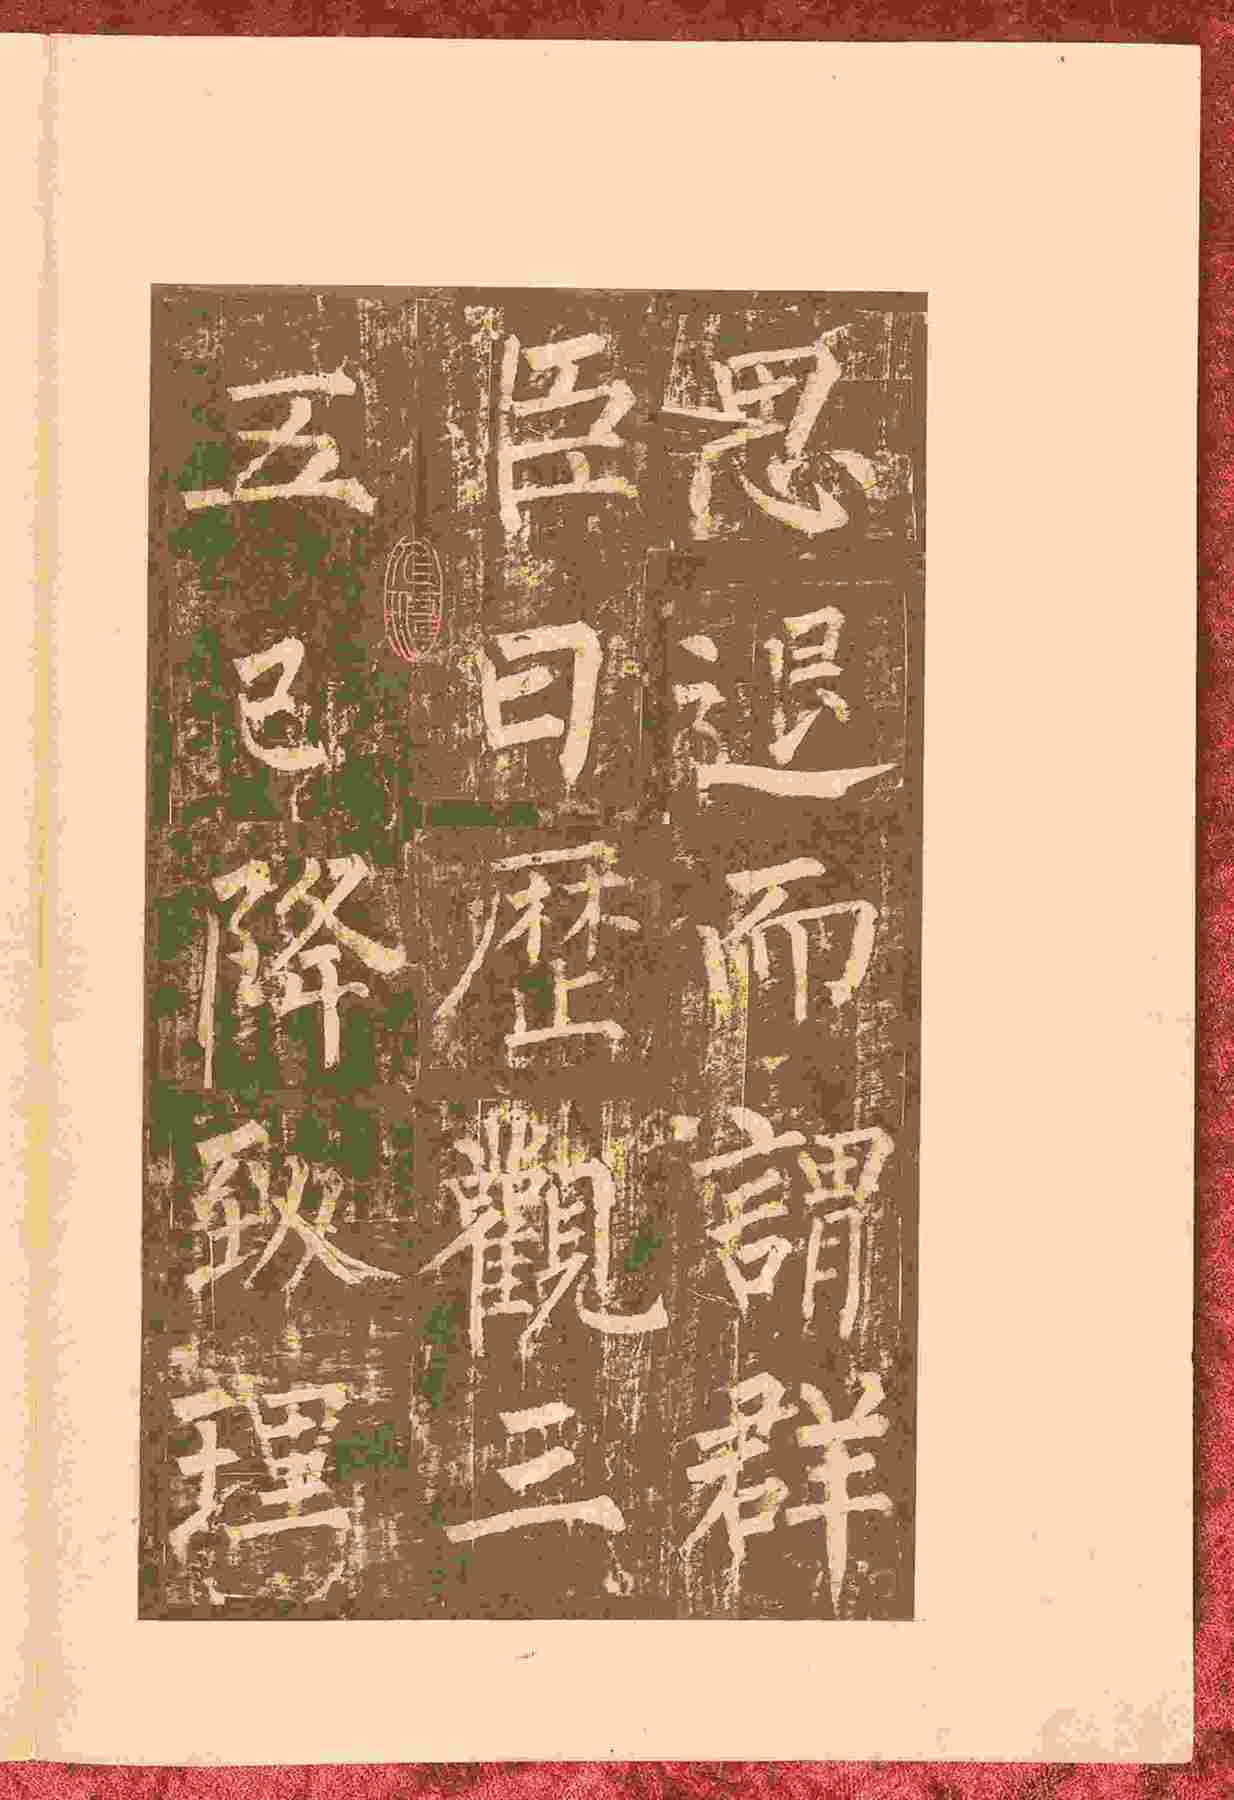 思退而謂群
臣曰歴觀三
五已降致理